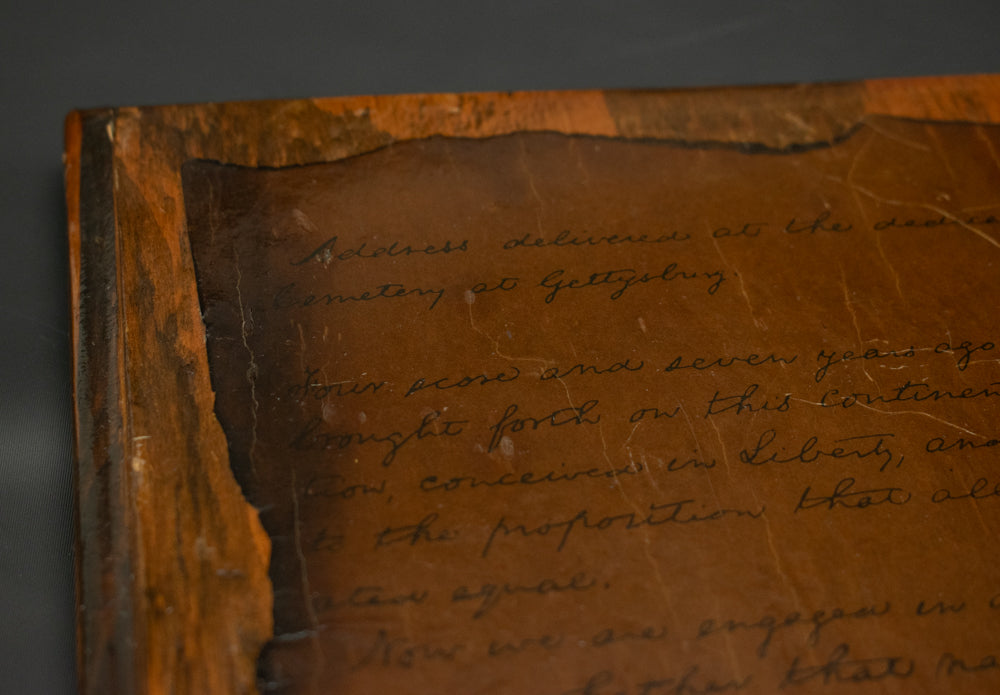 Address delivered at the ded
Cemetery at Gettysburg.
Four score and seven years ago
brought forth on this continen
tion, conceived in Liberty, and
to the proposition that all
ated equal.
Now we are engaged in
that na